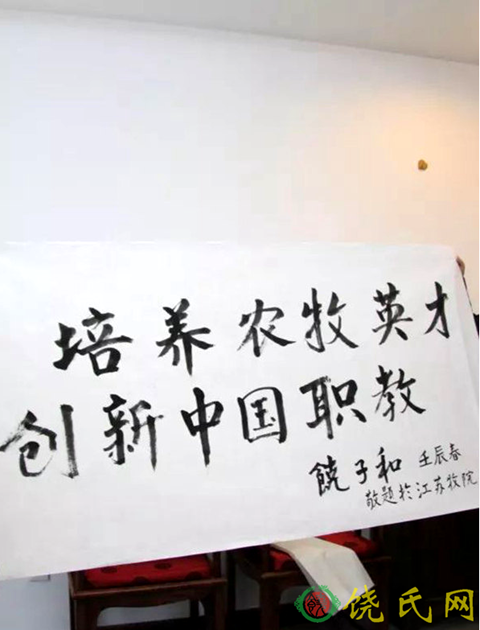 培养农牧英才
创新中国职教
饶子和 壬辰春
敬题於江苏牧院
饶氏网